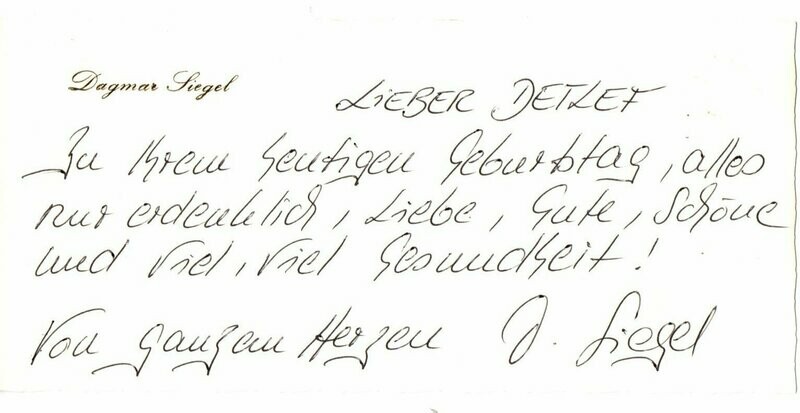 Dagmar Siegel
LIEBER DETLEF
Zu Ihrem heutigen Geburtstag, alles
nur erdenklich, Liebe, Gute, Schöne
und viel, viel Gesundheit!
Von ganzem Herzen D. Siegel